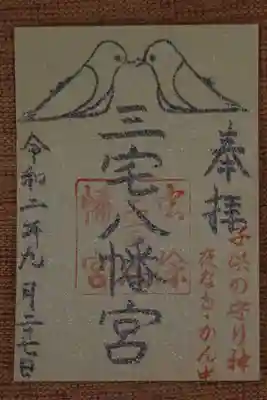 奉拝
子供の守り神
夜なき・かん虫
三宅八幡宮
虫除
幡宮
令和二年九月二十七日